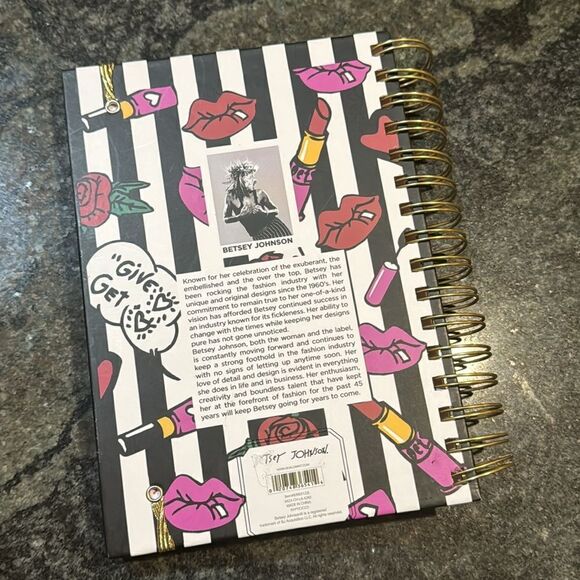 BETSEY JOHNSON
Known for her celebration of the exuberant, the
embellished and the over the top, Betsey has
been rocking the fashion industry with her
unique and original designs since the 1960's. Her
commitment to remain true to her one-of-a-kind
vision has afforded Betsey continued success in
an industry known for its fickleness. Her ability to
change with the times while keeping her designs
pure has not gone unnoticed.
Betsey Johnson, both the woman and the label,
is constantly moving forward and continues to
keep a strong foothold in the fashion industry
with no signs of letting up anytime soon. Her
love of detail and design is evident in everything
she does in life and in business. Her enthusiasm,
creativity and boundless talent that have kept
her at the forefront of fashion for the past 45
years will keep Betsey going for years to come.
"GIVE
GET
JOHNSON.
MADE IN CHINA
Betsey Johnson® is a registered
trademark of BJ Acquisition LLC. All rights reserved.